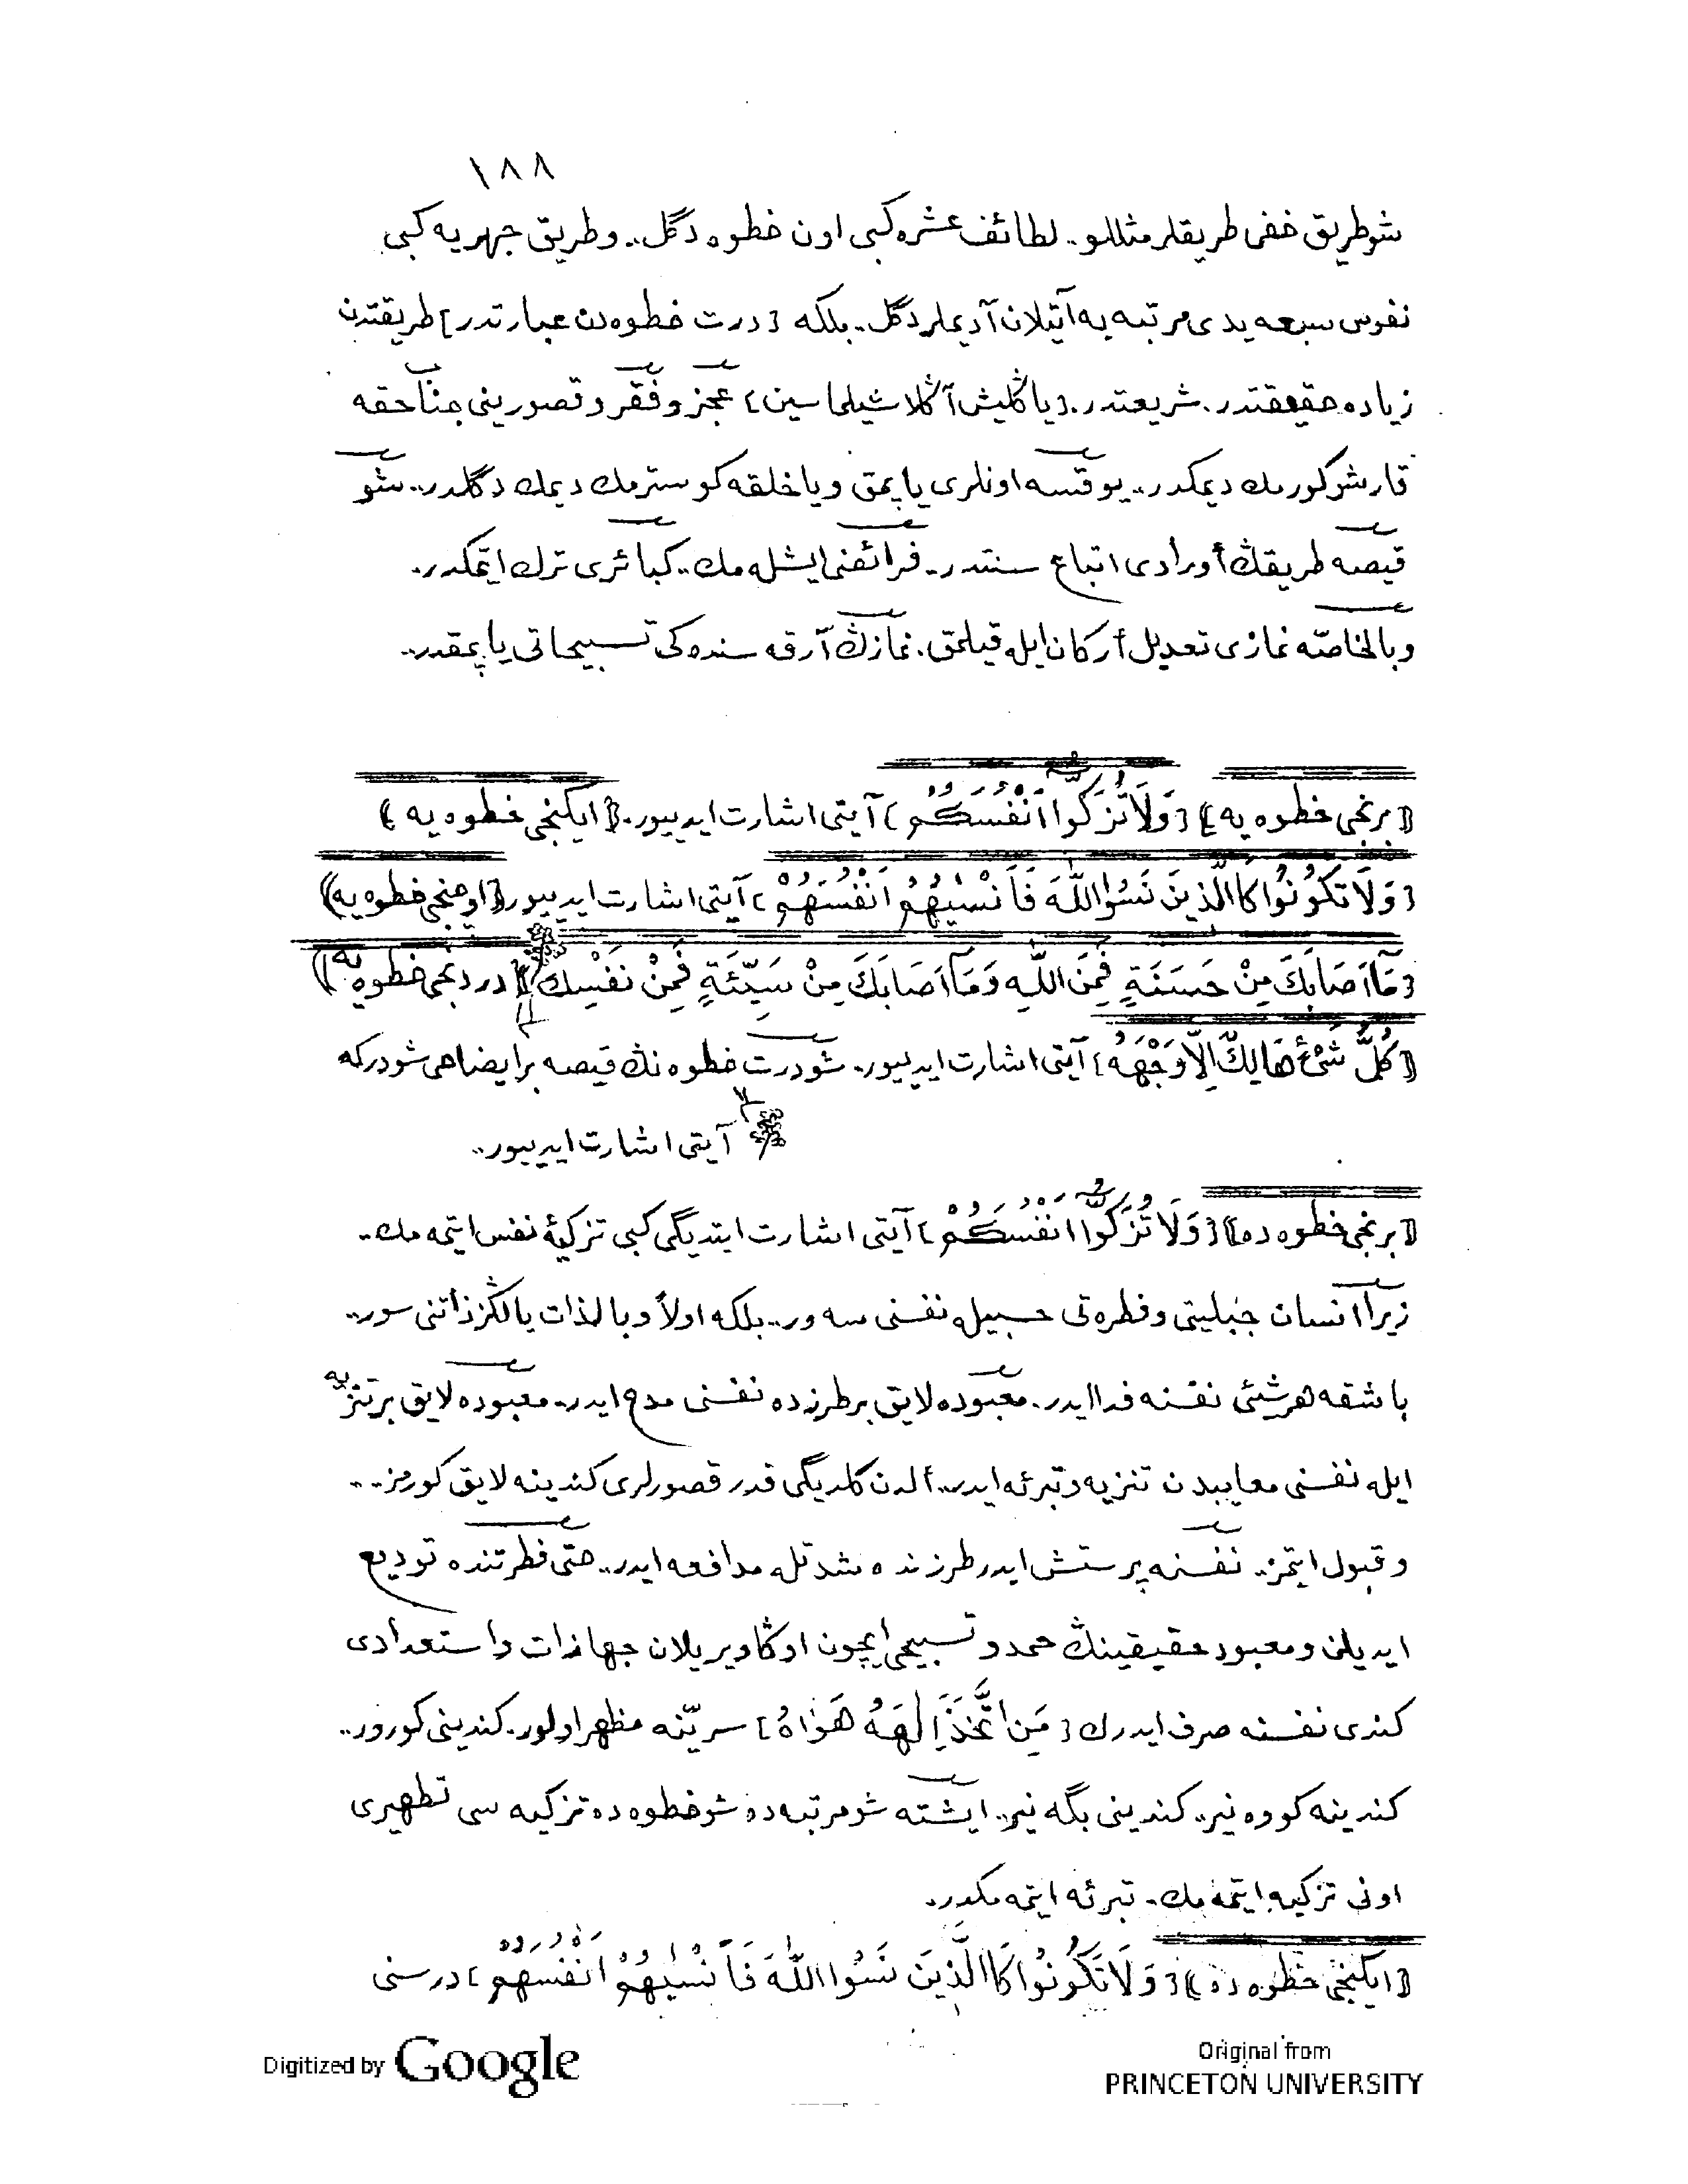 ١٨٨
شو طريق خفى طريقلر مثللو.. لطائف عشره كبى اون خطوه دگل.. وطريق جهريه كبى
نفوس سبعه يدى مرتبه يه آتيلان آديملر دگل.. بلكه [درت خطوه دن عبارتدر] طريقتدن
زياده حقيقتدر. شريعتدر. [ياڭليش آڭلاشيلماسين] عجز و فقر و قصورينى جناب حقه
قارشو كورمك ديمكدر.. يوقسه اونلرى ياپمق ويا خلقه كوسترمك ديمك دگلدر.. شو
قيصه طريقڭ أورادى اتباع سنتدر.. فرائضى ايشله مك.. كبائرى ترك ايتمكدر.
وبالخاصّه نمازى تعديل أركان ايله قيلمق. نمازڭ آرقه سنده كى تسبيحاتى ياپمقدر..
﴿برنجى خطوه يه﴾ [وَلَا تُزَكُّوا اَنْفُسَكُمْ] آيتى اشارت ايدييور. ﴿ايكنجى خطوه يه﴾
[وَلَا تَكُونُوا كَاالَّذِينَ نَسُوااللّٰهَ فَاَنْسٰيهُمْ اَنْفُسَهُمْ] آيتى اشارت ايدييور ﴿اوچنجى خطوه يه﴾
[مَآ اَصَابَكَ مِنْ حَسَنَةٍ فَمِنَ اللّٰهِ وَمَآ اَصَابَكَ مِنْ سَيِّئَةٍ فَمِنْ نَفْسِكَ] ﴿دردنجى خطوه يه﴾
[كُلُّ شَىْءٍ هَالِكٌ اِلَّا وَجْهَهُ] آيتى اشارت ايدييور. شو درت خطوه نڭ قيصه بر ايضاحى شودركه
آيتى اشارت ايدييور..
﴿برنجى خطوه ده﴾ [وَلَا تُزَكُّوا اَنْفُسَكُمْ] آيتى اشارت ايتديگى كبى تزكيۀ نفس ايتمه مك..
زيرا انسان جبليتى و فطره تى حسبيله نفسنى سه ور.. بلكه اولاً وبالذات يالڭز ذاتنى سور..
باشقه هر شيئى نفسنه فدا ايدر. معبوده لايق بر طرزده نفسنى مدح ايدر. معبوده لايق بر تنزيه
ايله نفسنى معايبدن تنزيه و تبرئه ايدر.. ألدن كلديگى قدر قصورلرى كندينه لايق كورمز..
و قبول ايتمز. نفسنه پرستش ايدر طرزنده شدتله مدافعه ايدر.. حتى فطرتنده توديع
ايديلن و معبود حقيقينڭ حمد و تسبيحى ايچون اوڭا ويريلان جهازات و استعدادى
كندى نفسنه صرف ايدرك [مَنِ اتَّخَذَ اِلٰهَهُ هَوٰاهُ] سريّنه مظهر اولور. كندينى كورور..
كندينه كووه نير.. كندينى بگه نير.. ايشته شو مرتبه ده شو خطوه ده تزكيه سى تطهيرى
اونى تزكيه ايتمه مك. تبرئه ايتمه مكدر.
﴿ايكنجى خطوه ده﴾ [وَلَا تَكُونُوا كَاالَّذِينَ نَسُوا اللّٰهَ فَاَنْسٰيهُمْ اَنْفُسَهُمْ] درسنى
Digitized by Google
Original from
PRINCETON UNIVERSITY